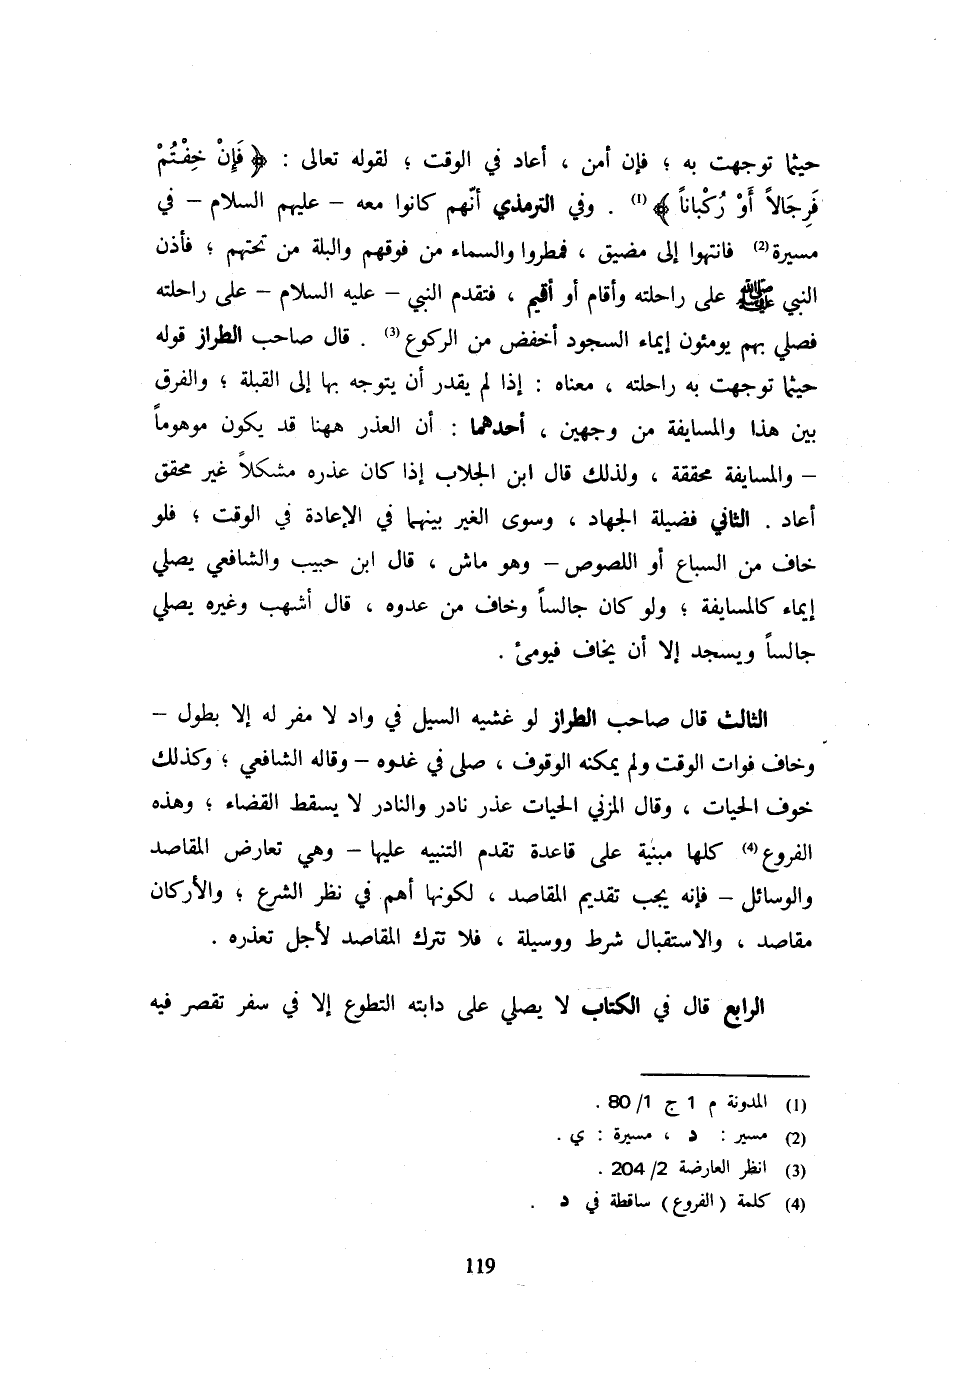 حيثما توجهت به ؛ فإن أمن ، أعاد في الوقت ؛ لقوله تعالى : ﴿ فَإِنْ خِفْتُمْ
فَرِجَالاً أَوْ رُكْبَاناً ﴾ (1) . وفي الترمذي أنّهم كانوا معه – عليهم السلام – في
مسيرة(2) فانتهوا إلى مضيق ، فمطروا والسماء من فوقهم والبلة من تحتهم ؛ فأذن
النبي ﷺ على راحلته وأقام أو أقيم ، فتقدم النبي – عليه السلام – على راحلته
فصلي بهم يومئون إيماء السجود أخفض من الركوع(3) . قال صاحب الطراز قوله
حيثما توجهت به راحلته ، معناه : إذا لم يقدر أن يتوجه بها إلى القبلة ؛ والفرق
بين هذا والمسايفة من وجهين ، أحدهما : أن العذر ههنا قد يكون موهوماً
– والمسايفة محققة ، ولذلك قال ابن الجلاب إذا كان عذره مشكلاً غير محقق
أعاد . الثاني فضيلة الجهاد ، وسوى الغير بينهما في الإعادة في الوقت ؛ فلو
خاف من السباع أو اللصوص – وهو ماش ، قال ابن حبيب والشافعي يصلي
إيماء كالمسايفة ؛ ولو كان جالساً وخاف من عدوه ، قال أشهب وغيره يصلي
جالساً ويسجد إلا أن يخاف فيومئ .
الثالث قال صاحب الطراز لو غشيه السيل في واد لا مفر له إلا بطول –
وخاف فوات الوقت ولم يمكنه الوقوف ، صلى في غدوه – وقاله الشافعي ؛ وكذلك
خوف الحيات ، وقال المزني الحيات عذر نادر والنادر لا يسقط القضاء ؛ وهذه
الفروع(4) كلها مبنية على قاعدة تقدم التنبيه عليها – وهي تعارض المقاصد
والوسائل – فإنه يجب تقديم المقاصد ، لكونها أهم في نظر الشرع ؛ والأركان
مقاصد ، والاستقبال شرط ووسيلة ، فلا تترك المقاصد لأجل تعذره .
الرابع قال في الكتاب لا يصلي على دابته التطوع إلا في سفر تقصر فيه
(1) المدونة م 1 ج 1/ 80 .
(2) مسير : د ، مسيرة : ي .
(3) انظر العارضة 2/ 204 .
(4) كلمة ( الفروع ) ساقطة في د .
119